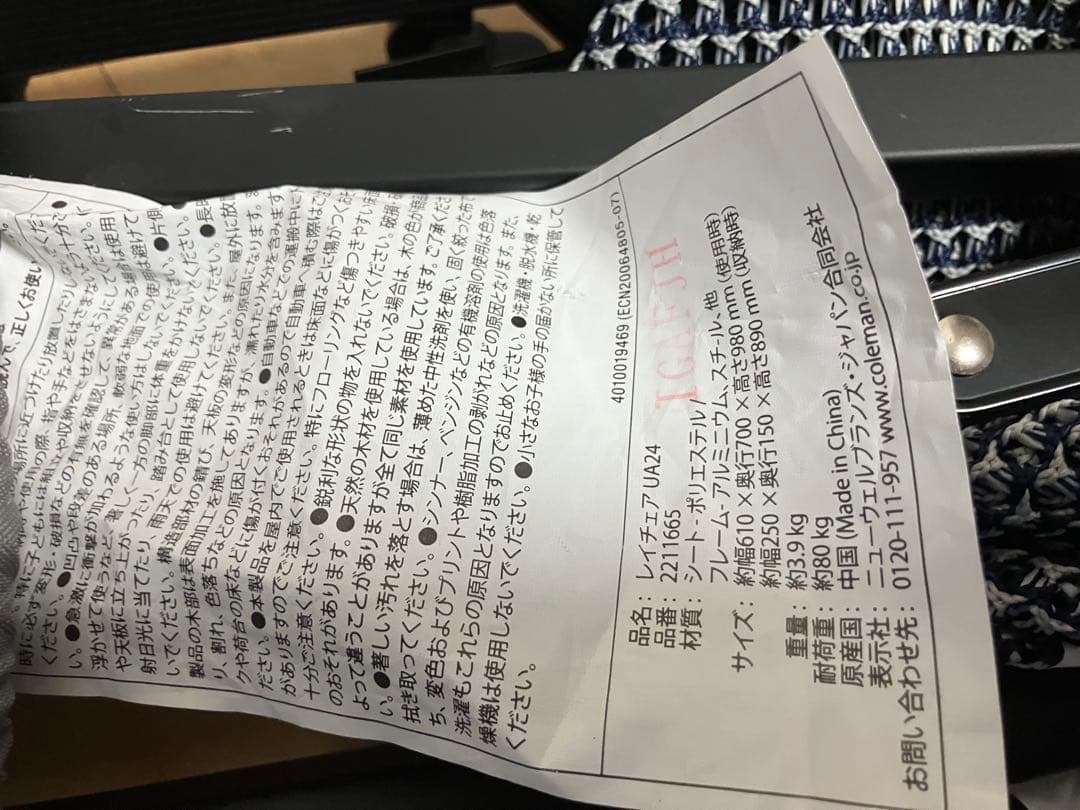 正しくお使い
ください。●急激に衝撃が加わるような使い方はしないでください。
浮かせて使うなど、著しく一方の脚部に体重をかけないでください。
や天板に立ち上がったり、踏み台として使用しないでください。●長
射日光に当てたり、雨天での使用は避けてください。また、屋外に放
いでください。構造部材の錆び、天板の変形などの原因になります。
製品の木部は表面加工を施してありますが、濡れたり水分を含みます
り、割れ、色落ちなどの原因となります。●自動車などでの運搬中に
クや荷台の床などに傷が付くおそれがあるので自動車へ積む際はご
ださい。●本製品を屋内でご使用されるときは床面などに傷がつくおそ
がありますのでご注意ください。特にフローリングなど傷つきやすい床
十分ご注意ください。●鋭利な形状の物を入れないでください。破損
のおそれがあります。●天然の木材を使用している場合は、木の色が商品
よって違うことがありますが全て同じ素材を使用しています。ご了承くだ
い。●著しい汚れを落とす場合は、薄めた中性洗剤を使い、固く絞った布で
拭き取ってください。●シンナー、ベンジンなどの有機溶剤の使用は色落
ち、変色およびプリントや樹脂加工の剥がれなどの原因となります。また、
洗濯もこれらの原因となりますのでお止めください。●洗濯機・脱水機・乾
燥機は使用しないでください。●小さなお子様の手の届かない所に保管して
ください。
4010019469 (ECN20064805-07)
IGAFJH
品名：レイチェア UA24
品番：2211665
材質：シート- ポリエステル/
フレーム- アルミニウム、スチール、他
サイズ：約幅610×奥行700×高さ980 mm (使用時)
約幅250×奥行150×高さ890 mm (収納時)
重量：約3.9 kg
耐荷重：約80 kg
原産国：中国 (Made in China)
表示社：ニューウェルブランズ・ジャパン合同会社
お問い合わせ先：0120-111-957 www.coleman.co.jp